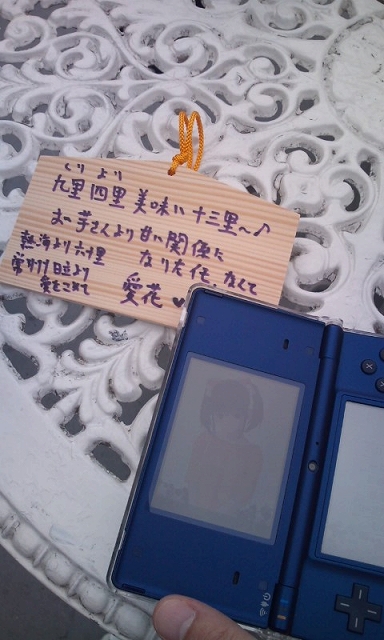 くり より
九里四里美味い十三里〜♪
お芋さんより甘い関係に
なくて
熱海より六十里
日立より
愛をこめて
愛花♥